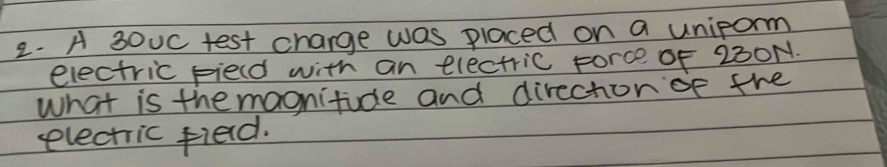 2. A 30uc test charge was placed on a uniform
electric field with an electric force of 230N.
What is the magnitude and direction of the
electric field.